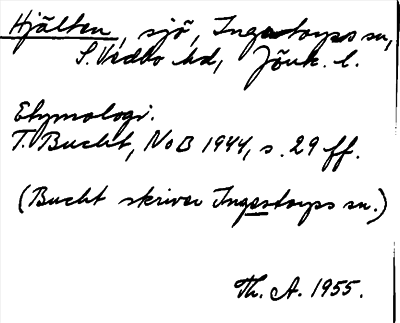 Hjälten, sjö, Ingatorps sn,
S. Vedbo hd, Jönk. l.
Etymologi.
T. Bucht, NoB 1944, s. 29 ff.
(Bucht skriver Ingestorps sn.)
Th. A. 1955.